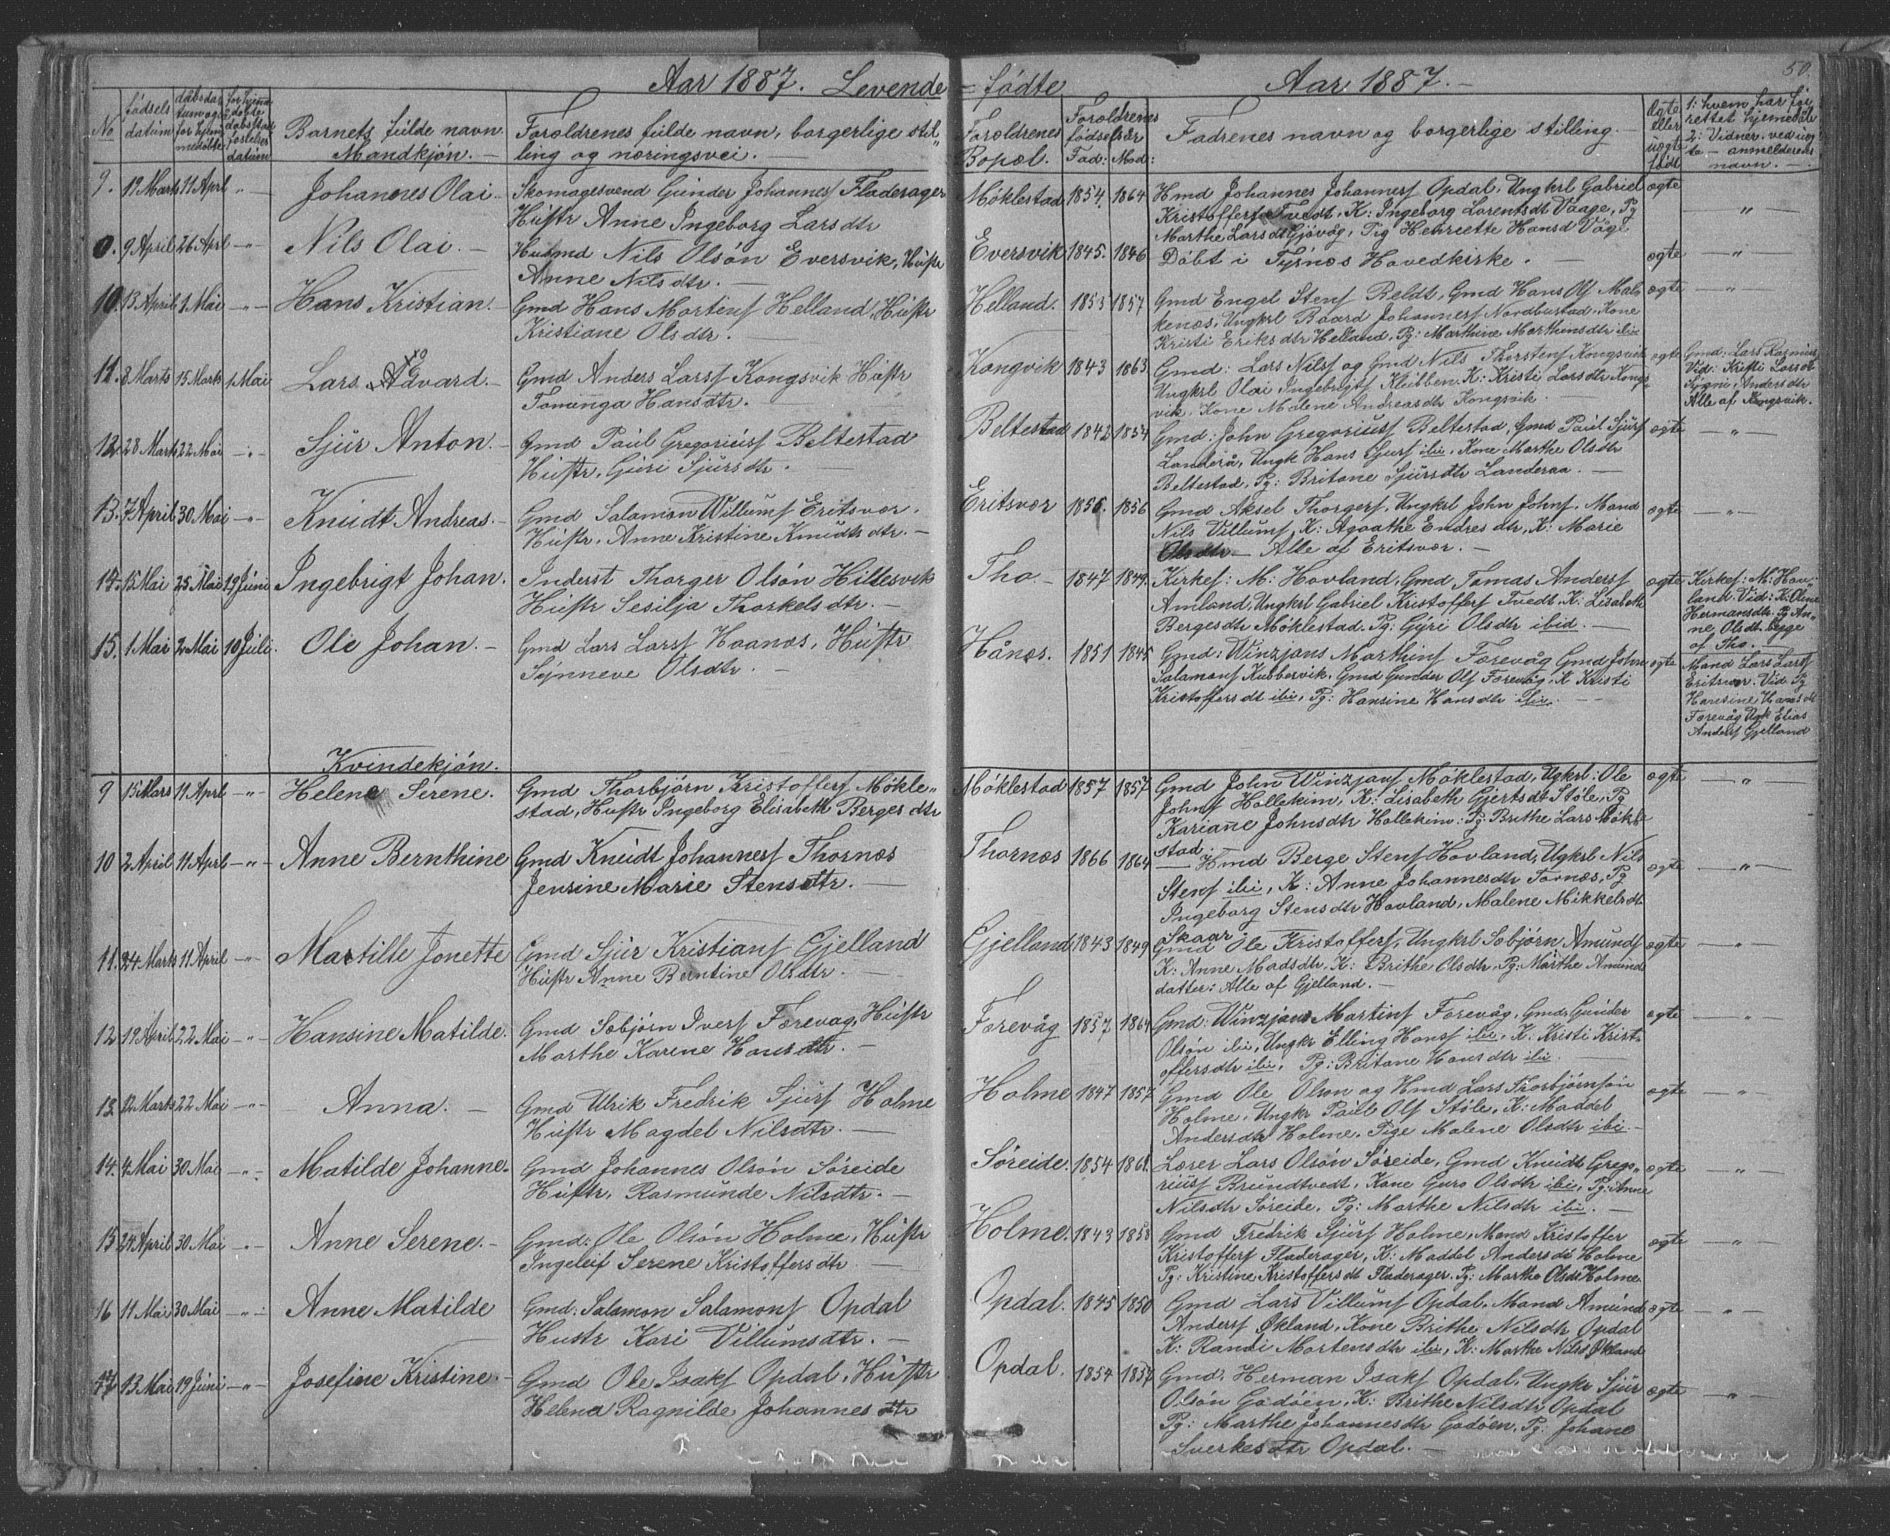 Aar 1887. Levende = fødte Aar 1887. 50.
No fødsels datum Barnets fulde navn. Mandkjøn. Foroldrenes fulde navn, borgerlige stilling og næringsvei. Foroldrenes Bopæl. Foroldrenes fødselsaar Fad: Mod: Fadrenes navn og borgerlige stilling. Ægte eller uægte født
9. 19 Marts 11 Aprl " Johannes Olai. Skomagesvend Gunder Johannesf Fladerager
Hustr Anne Ingeborg Larsdtr
Møklestad 1854. 1864 Hmd Johannes Johannesf Opdal, Ungkrl Gabriel ægte "
Kristoffersf Tvedt, K: Ingeborg Lorentsdt Vaage, Pg
Marthe Larsdt Gjøvåg, Pig Henriette Hansd Våge
0. 9 April 26 Aprl " Nils Olai. Husmd Nils Olsøn Eversvik, Hustr
Anne Nilsdtr.
Eversvik 1845. 1846 Døbt i Tysnæs Hovedkirke. ægte "
10. 13 April 1 Mai " Hans Kristian. Gmd Hans Mortensf Helland, Hustr
Kristiane Olsdtr.
Helland. 1853 1857 Gmd Engel Stensf Beldt, Gmd Hans Olsf Malkenæs, ægte "
Ungkrl Baard Johannesf Nordbustad, Kone
Kristi Eriksdtr Helland, Pg: Marthine Marthinsdtr ibi
11. 8 Marts 15 Marts 1 Mai Lars Advard. Gmd Anders Larsf Kongsvik Hustr
Tominga Hansdtr.
Kongvik 1843 1863 Gmd: Lars Nilsf og Gmd Nils Thorstensf Kongsvik ægte Gmd: Lars Rasmusf
Ungkrl Olai Ingebrigtsf Klubben, K: Kristi Larsdtr Kongsvik, Vid: Kristi Larsdt
Kone Malene Andreasdtr Kongsvik. Andersdtr
Alle af Kongsvik.
12. 28 Marts 22 Mai " Sjur Anton. Gmd Paul Gregoriusf Beltestad
Hustr. Guri Sjursdtr.
Beltestad 1842 1854 Gmd: John Gregoriusf Beltestad, Gmd Paul Sjursf ægte "
Landerå, Ungk Hans Sjursf ibi. Kone Marthe Olsdtr
Beltestad, Pg: Britane Sjursdtr Landeraa.
13. 7 April 30 Mai " Knudt Andreas. Gmd Salamon Willumsf Eritsvær.
Hustr. Anne Kristine Knudtsdtr.
Eritsvær 1856. 1856 Gmd Aksel Thorgersf, Ungkrl John Johnsf, Mand ægte "
Nils Villumsf, K: Agaathe Endresdtr, K: Marie
Olsdtr Alle af Eritsvær.
14. 15 Mai 25 Mai 19 Juni Ingebrigt Johan. Inderst Thorger Olsøn Hillesvik
Hustr Sesilja Thorkelsdtr.
Tho 1847 1849. Kirkes: M: Hovland, Gmd Tomas Andersf ægte Kirkes: M: Hovland.
Amland, Ungkrl Gabriel Kristoffersf Tvedt, K: Lisabeth Vid: K: Oline
Bergesdtr Møklestad. Pg: Gyri Olsdtr ibid. Hermansdtr. Pg Anne Olsdt. begge
af Tho.
15. 1 Mai 2 Mai 10 Juli. Ole Johan. Gmd Lars Larsf Haanæs, Hustr
Synneve Olsdtr.
Hånæs. 1851 1845 Gmd: Winzjans Marthinsf Færevåg Gmd John ægte Mand Lars Larsf
Salamonsf Kubbervik. Gmd Gunder Olsf Færevåg, K Kristi Eritsvær. Vid: Pg
Kristoffersdt ibi, Pg: Hansine Hansdtr ibi. Hansine Hansdt
Færevåg Ungk Elias
Andersf Gjelland
Kvindekjøn.
9 15 Mars 11 Aprl " Helene Serene. Gmd Thorbjørn Kristoffersf Møklestad,
Hustr Ingeborg Elisabeth Bergesdtr
Møklestad 1857 1857 Gmd John Winzjansf Møklestad, Ugkrl: Ole ægte "
Johnsf Hollekim, K: Lisabeth Gjertsdt Støle, Pg
Kariane Johnsdtr Hollekim: Pg: Brithe Lars Møklestad.
10 2 April 11 Aprl " Anne Bernthine Gmd Knudt Johannesf Thornæs
Jensine Marie Stensdtr.
Thornæs 1866 1864 Hmd Berge Stensf Hovland, Ugkrl Nils ægte "
Stensf ibi, K: Anne Johannesdtr Tornæs, Pg
Ingeborg Stensdtr Hovland, Malene Mikkelsdt
Skaar.
11. 24 Marts 11 April " Martille Jonette Gmd Sjur Kristiansf Gjelland
Hustr Anne Berntine Olsdtr.
Gjelland 1843 1849 Gmd Ole Kristoffersf, Ungkrl Sobjørn Amundsf ægte "
K: Anne Madsdtr. K: Brithe Olsdtr, Pg: Marthe Amunds
datter: Alle af Gjelland.
12. 19 April 22 Mai " Hansine Matilde. Gmd Sæbjørn Iversf Færevag, Hustr
Marthe Karine Hansdtr.
Færevåg 1857 1864 Gmd: Winzjans Martinsf Færevåg, Gmd: Gunder ægte "
Olsøn ibi, Ungkr Elling Hansf ibi, K: Kristi Krist-
offersdtr ibi, Pg: Britane Hansdtr ibi.
13. 12 Marts 22 Mai " Anna. Gmd Ulrik Fredrik Sjursf Holme
Hustr Magdel Nilsdtr.
Holme 1847 1857 Gmd Ole Olsøn og Hmd Lars Thorbjørnsøn ægte "
Holme. Ungkr Paul Olsf Støle, K: Maddel
Andersdtr Holme, Pige Malene Olsdtr ibi.
14. 4 Mai 30 Mai " Matilde Johanne. Gmd Johannes Olsøn Søreide
Hustr. Rasmunde Nilsdtr.
Søreide. 1854 1861. Lærer Lars Olsøn Søreide, Gmd Knudt Grego- ægte "
riusf Brundtvedt, Kone Guro Olsdtr ibi, Pg: Anne
Nilsdtr Søreide, Pg: Marthe Nilsdtr ibi.
15 24 April 30 Mai " Anne Serene. Gmd: Ole Olsøn Holme, Hustr
Ingeleif Serene Kristoffersdtr
Holme. 1843 1858 Gmd Fredrik Sjursf Holme, Mand Kristoffer ægte "
Kristoffersf Fladerager, K: Maddel Andersdt Holme
Pg: Kristine Kristoffersdt Fladerager. Pg: Marthe Olsdt Holme.
16 11 Mai 30 Mai " Anne Matilde Gmd: Salamon Salamonsf Opdal
Hustr Kari Villumsdtr.
Opdal. 1845 1850 Gmd Lars Villumsf Opdal, Mand Amund ægte "
Andersf Økland, Kone Brithe Nilsdtr Opdal
K: Randi Mortensdtr ibi, K: Marthe Nilsd Økland
17 13 Mai 19 Juni " Josefine Kristine. Gmd Ole Isaksf Opdal, Hustr
Helena Ragnilde Johannesdtr
Opdal. 1854 1857 Gmd: Herman Isaksf Opdal, Ungkr Sjur ægte "
Olsøn Godøen, K: Brithe Nilsdtr Opdal
Pg: Marthe Johannesdtr Godøen, Pg: Johane
Sverkesdtr Opdal.